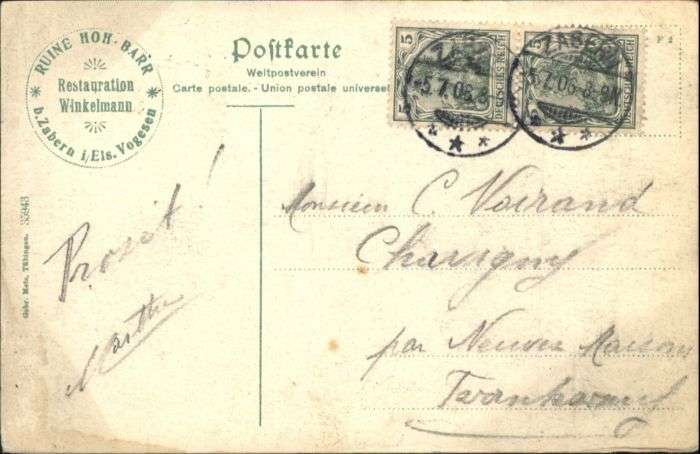 RUINE HOH-BARR
Restauration
Winkelmann
b. Zabern i/Els. Vogesen
Postkarte
Weltpostverein
Carte postale. - Union postale universel
5
DEUTSCHES REICH
5
DEUTSCHES REICH
ZABERN
5.7.06
5.7.06.8-9N
Gebr. Metz, Tübingen. 35943
Prosit!
Marthe
Monsieur C. Voirand
Charigny
par Neuves Maisons